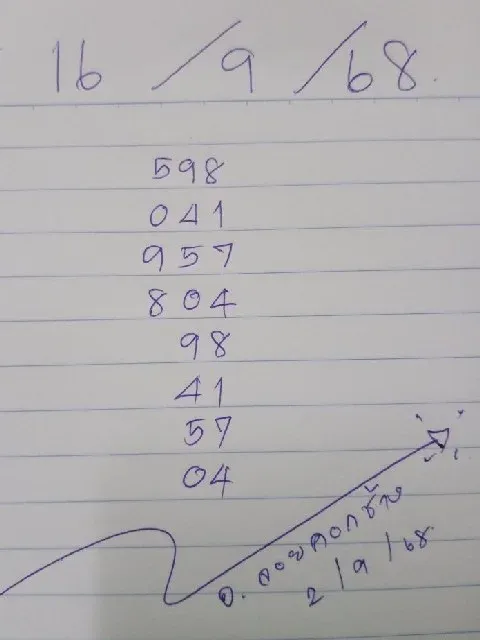 16/9/68
598
041
957
804
98
41
57
04
อ. ลอยคอกช้าง
2/9/68